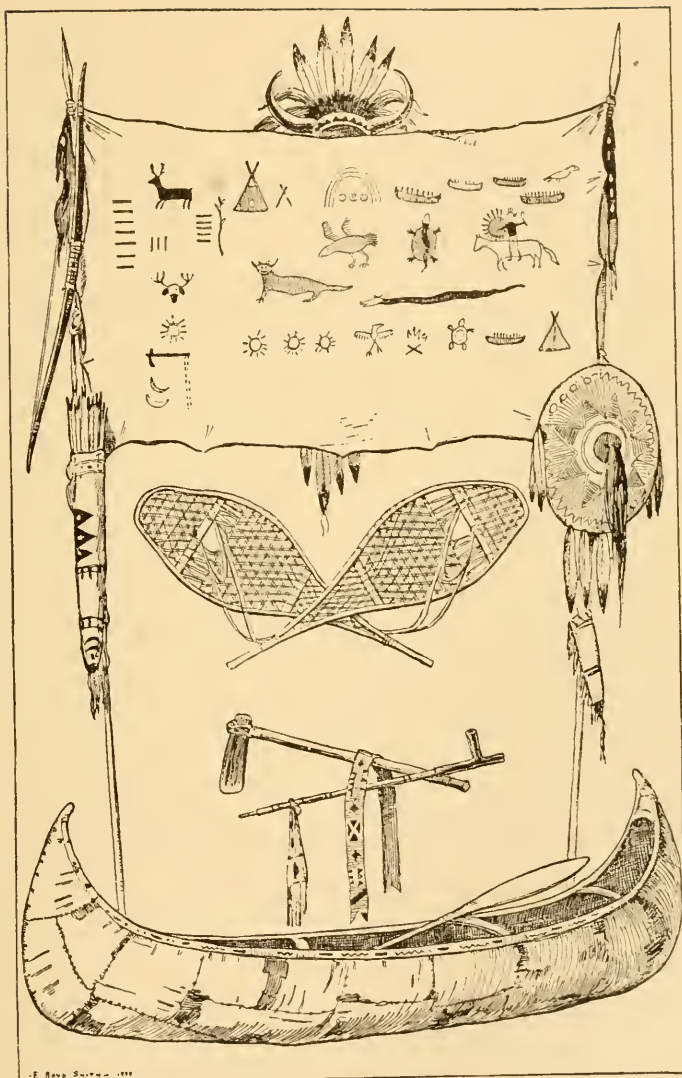 E Boyd Smith